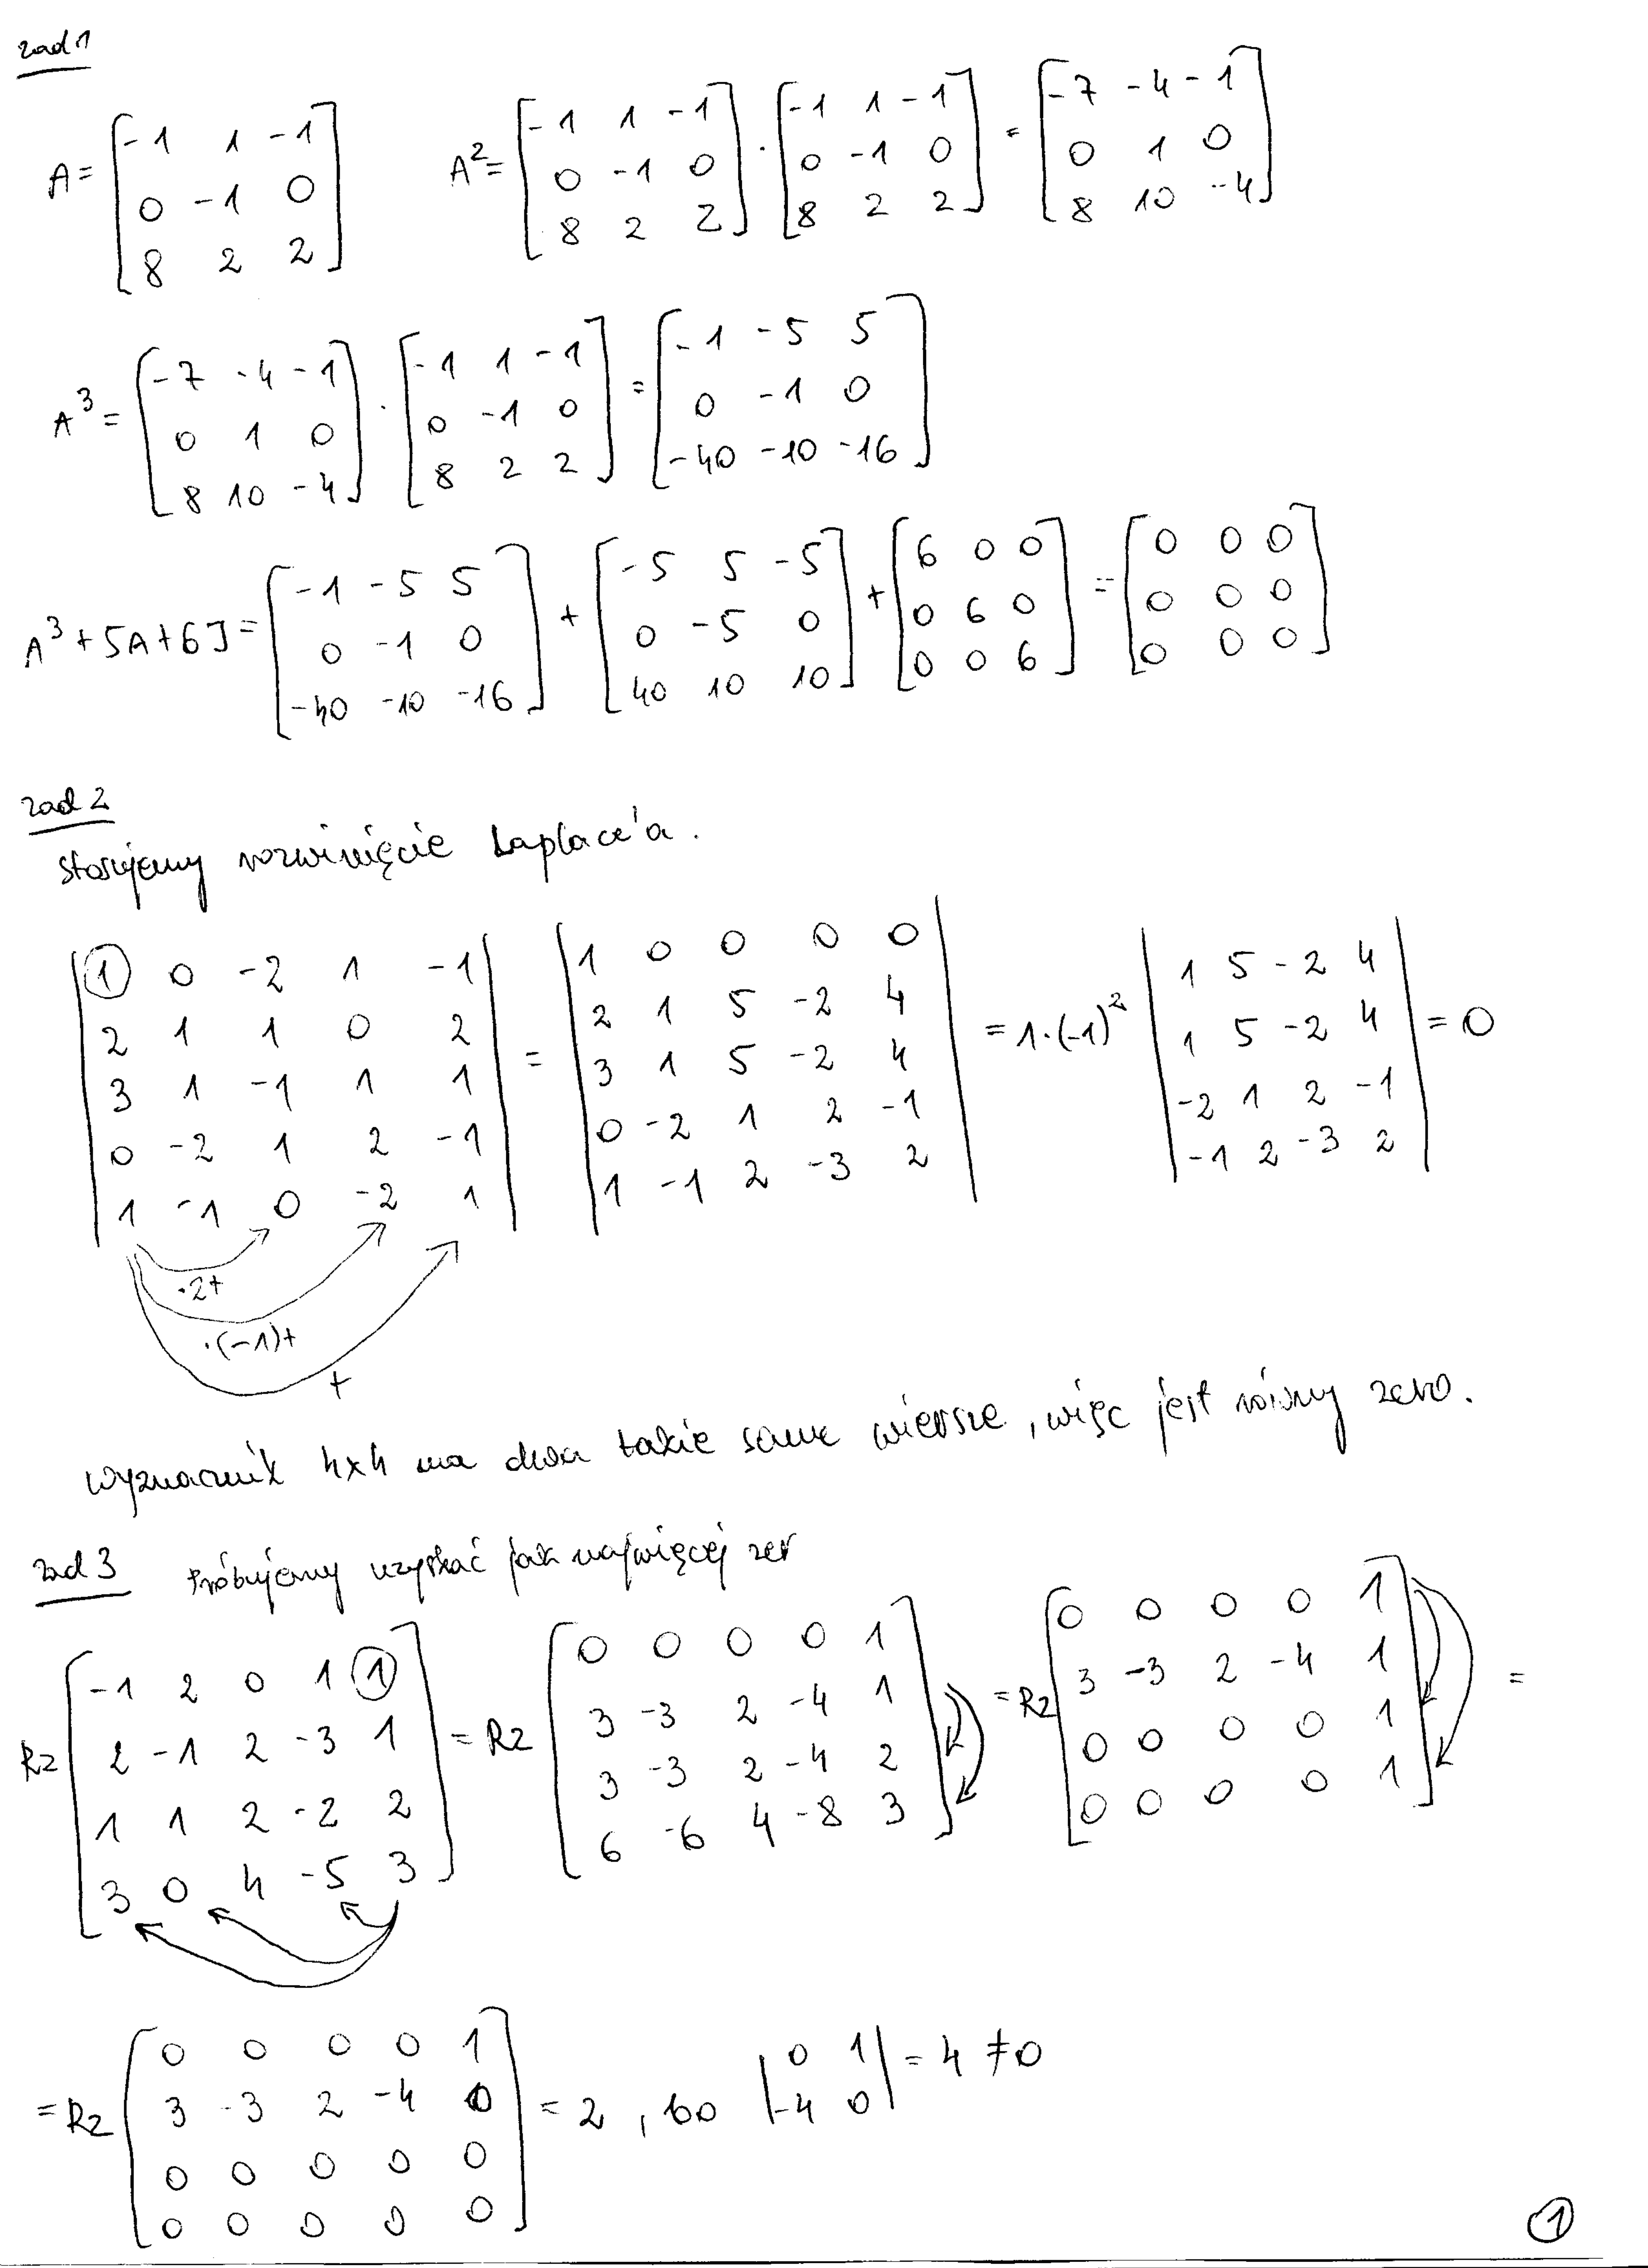 zad 1
A = [-1 1 -1; 0 -1 0; 8 2 2] A² = [-1 1 -1; 0 -1 0; 8 2 2] · [-1 1 -1; 0 -1 0; 8 2 2] = [-7 -4 -1; 0 1 0; 8 10 -4]
A³ = [-7 -4 -1; 0 1 0; 8 10 -4] · [-1 1 -1; 0 -1 0; 8 2 2] = [-1 -5 5; 0 -1 0; -40 -10 -16]
A³ + 5A + 6I = [-1 -5 5; 0 -1 0; -40 -10 -16] + [-5 5 -5; 0 -5 0; 40 10 10] + [6 0 0; 0 6 0; 0 0 6] = [0 0 0; 0 0 0; 0 0 0]
zad 2
stosujemy rozwinięcie Laplace'a.
|1 0 -2 1 -1; 2 1 1 0 2; 3 1 -1 1 1; 0 -2 1 2 -1; 1 -1 0 -2 1| = |1 0 0 0 0; 2 1 5 -2 4; 3 1 5 -2 4; 0 -2 1 2 -1; 1 -1 2 -3 2| = 1·(-1)² |1 5 -2 4; 1 5 -2 4; -2 1 2 -1; -1 2 -3 2| = 0
·2+
·(-1)+
+
wyznacznik 4x4 ma dwa takie same wiersze, więc jest równy zero.
zad 3 Próbujemy uzyskać jak najwięcej zer
Rz [-1 2 0 1 1; 2 -1 2 -3 1; 1 1 2 -2 2; 3 0 4 -5 3] = Rz [0 0 0 0 1; 3 -3 2 -4 1; 3 -3 2 -4 2; 6 -6 4 -8 3] = Rz [0 0 0 0 1; 3 -3 2 -4 1; 0 0 0 0 1; 0 0 0 0 1] =
= Rz [0 0 0 0 1; 3 -3 2 -4 0; 0 0 0 0 0; 0 0 0 0 0] = 2, bo |0 1; -4 0| = 4 ≠ 0
1